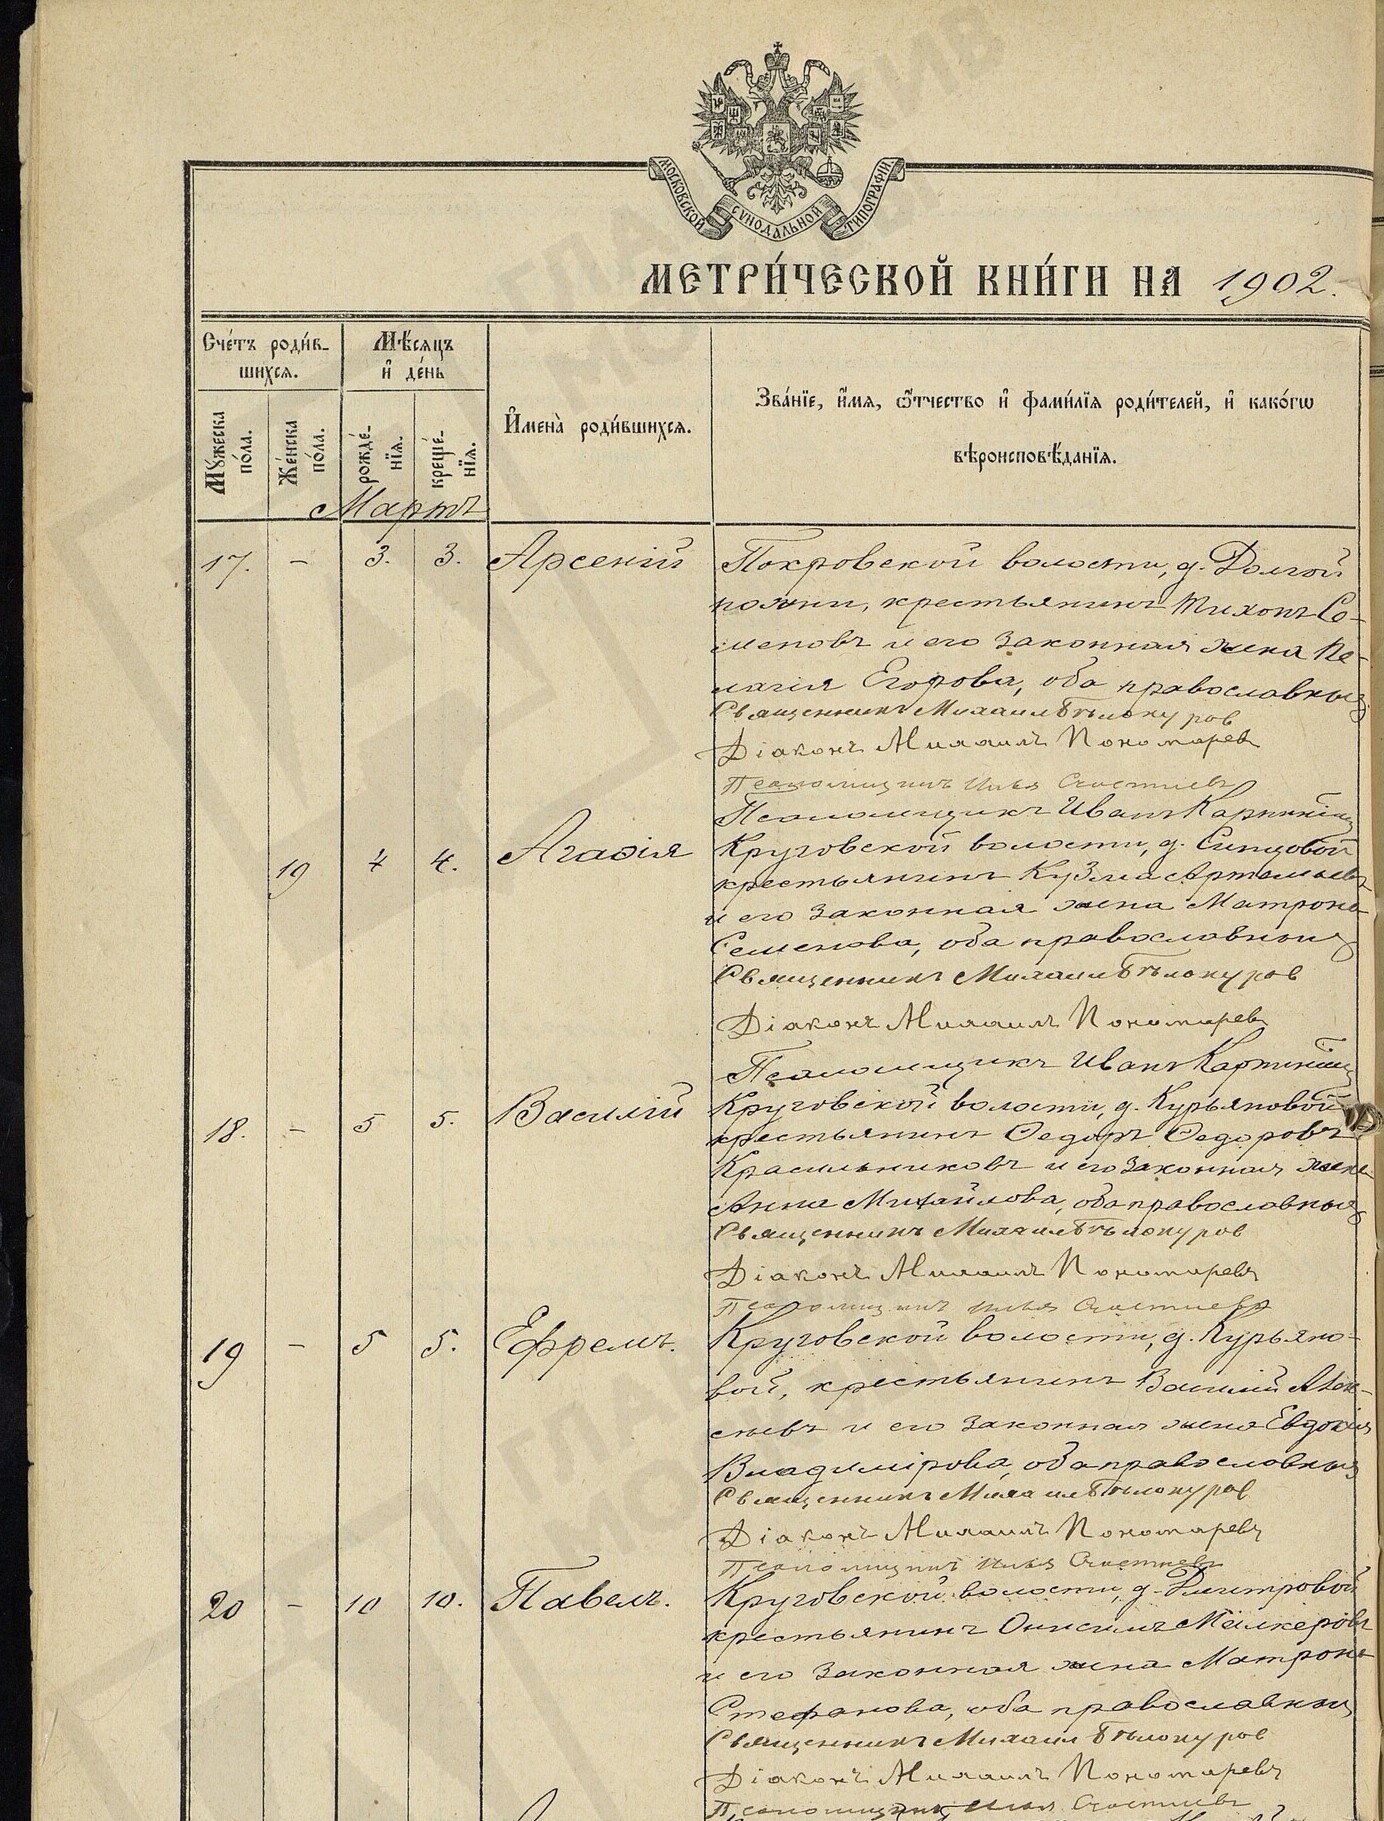 МОСКОВСКОЙ СѴНОДАЛЬНОЙ ТИПОГРАФІИ
МЕТРИ́ЧЕСКОЙ КНИ́ГИ НА 1902.
Сче́тъ роди́в-
шихся.
Мѣ́сяцъ
и҆ де́нь
И҆мена̀ роди́вшихся.
Зва́нїе, и҆́мя, ѻ҆́тчество и҆ фами́лїя роди́телей, и҆ како́гѡ
вѣроисповѣ́данїя.
Мꙋ́жеска
по́ла.
Же́нска
по́ла.
рожде́-
нїя.
креще́-
нїя.
Мартъ
17. - 3. 3. Арсеній Покровской волости, д. Долгой
поляни, крестьянинъ Тихонъ Се-
меновъ и его законная жена Пе-
лагія Егорова, оба православные
Священникъ Михаилъ Бѣлокуров
Діаконъ Михаилъ Пономаревъ
Псаломщикъ Илья Счастневъ
Псаломщикъ Иванъ
19 4 4. Агафія Круговской волости, д. Синцовой
крестьянинъ Кузма Артемьевъ
и его законная жена Матрона
Семенова, оба православные
Священникъ Михаилъ Бѣлокуров
Діаконъ Михаилъ Пономаревъ
Псаломщикъ Иванъ
18. - 5 5. Василій Круговской волости, д. Курьяновой
крестьянинъ Ѳедоръ Ѳедоровъ
Красильниковъ и его законная жена
Анна Михайлова, оба православные
Священникъ Михаилъ Бѣлокуров
Діаконъ Михаилъ Пономаревъ
Псаломщикъ Илья Счастневъ
19 - 5 5. Ефремъ. Круговской волости, д. Курьяно-
вой, крестьянинъ Василій Алек-
сѣевъ и его законная жена Евдокія
Владимірова, оба православные
Священникъ Михаилъ Бѣлокуров
Діаконъ Михаилъ Пономаревъ
Псаломщикъ Илья Счастневъ
20 - 10 10. Павелъ. Круговской волости, д. Дмитровой
крестьянинъ Онисимъ
и его законная жена Матрона
Стефанова, оба православные
Священникъ Михаилъ Бѣлокуров
Діаконъ Михаилъ Пономаревъ
Псаломщикъ Илья Счастневъ